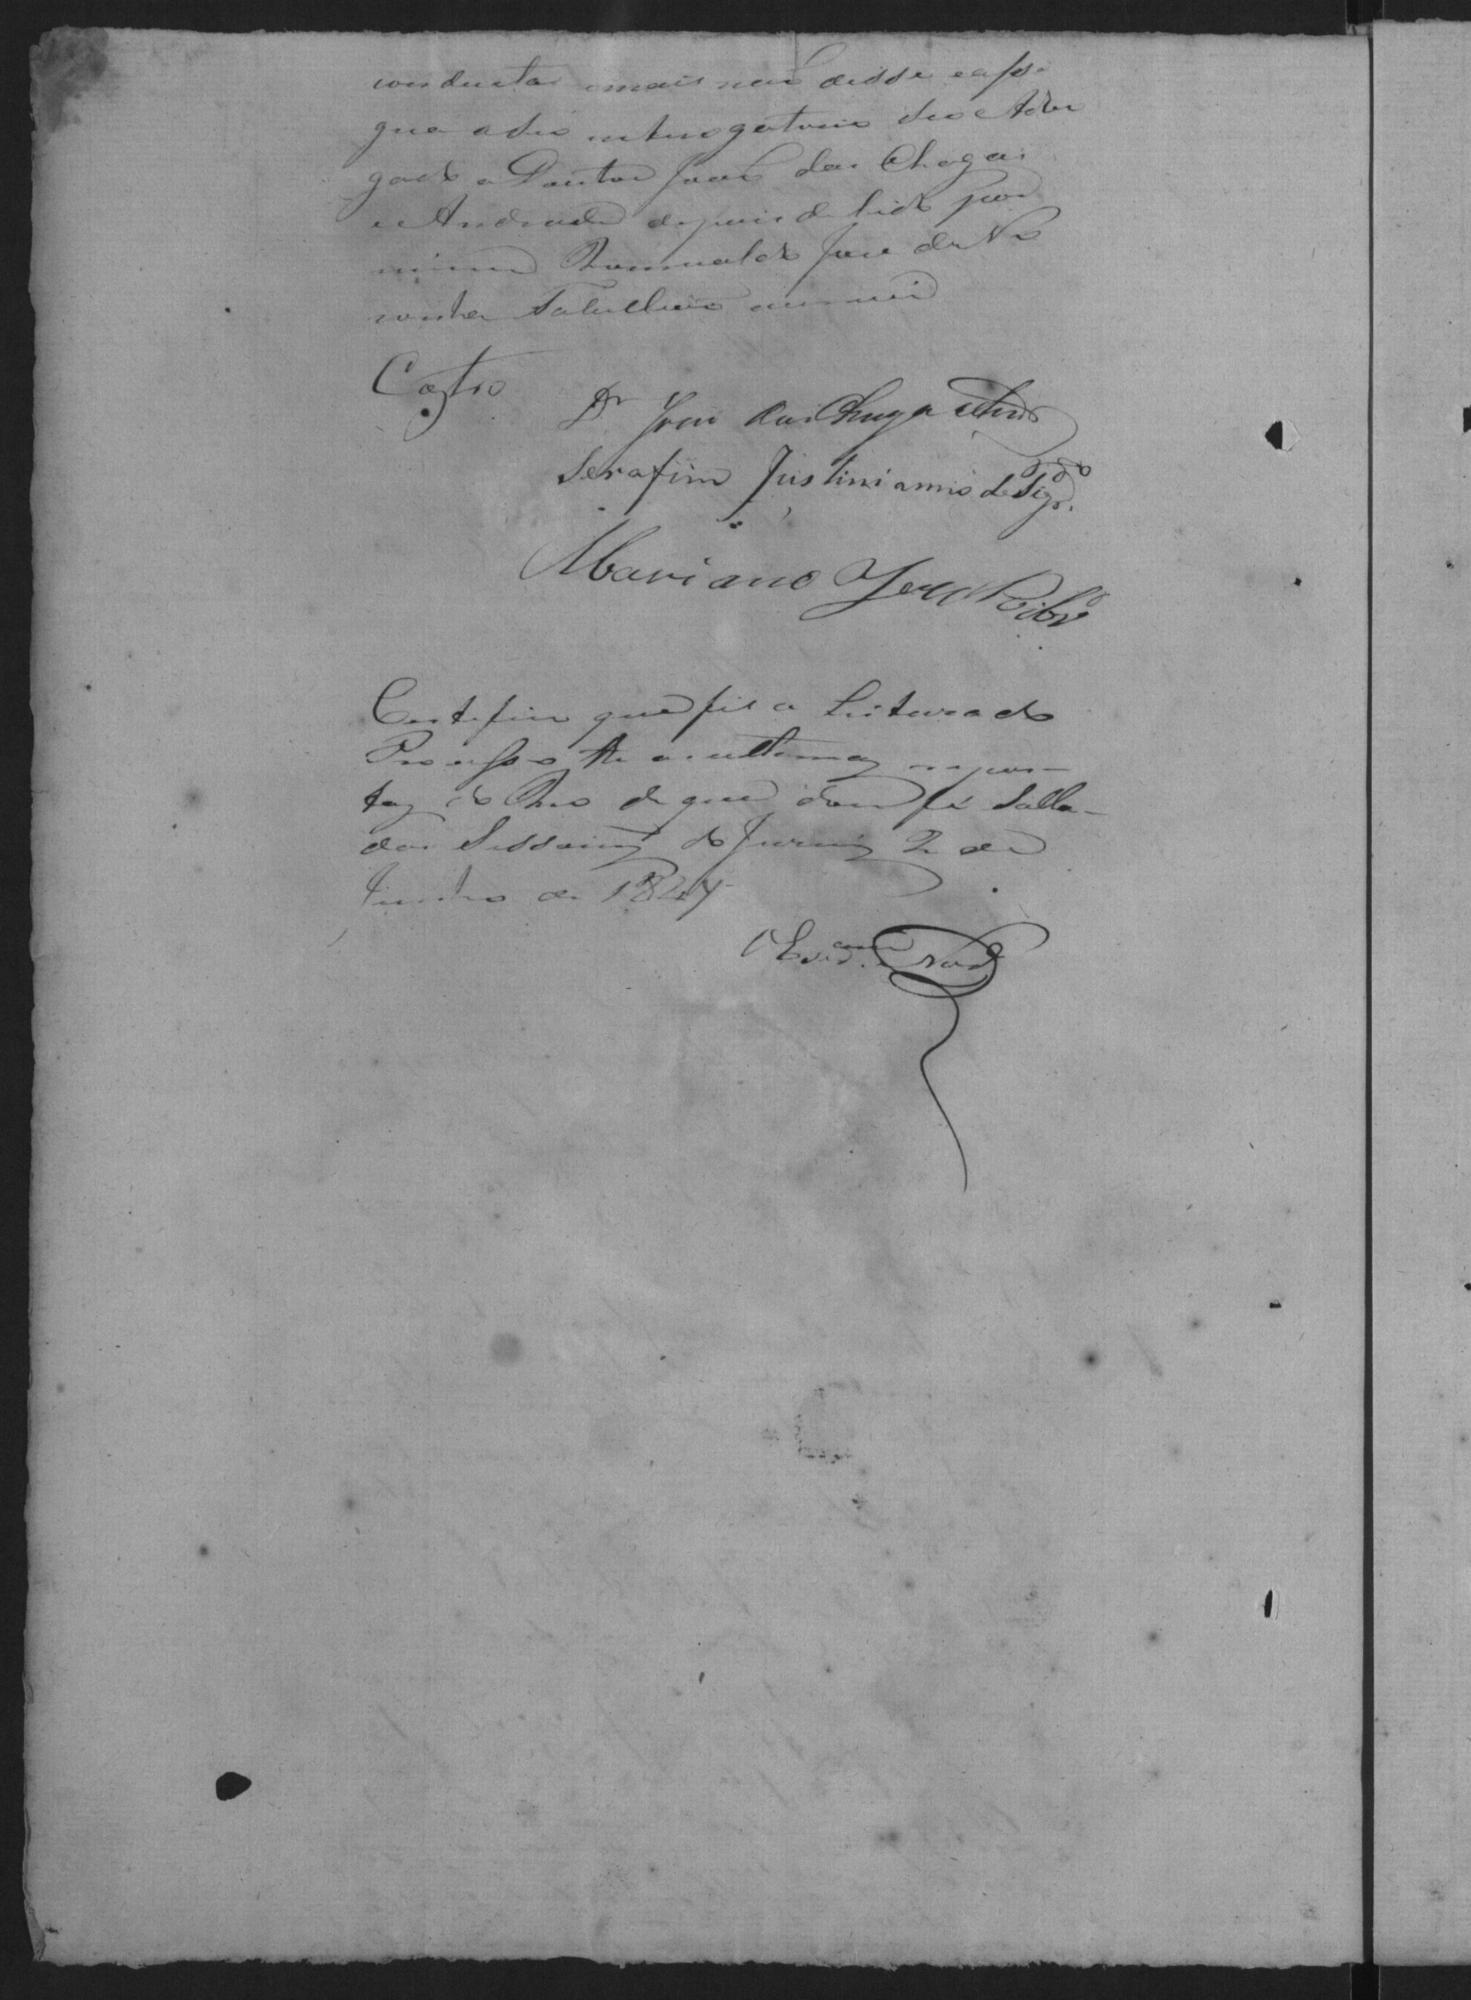 conducta emais naõ disse eassi
gna o seo interrogatorio seo Advo
gado o Doutor Joaõ das Chagas
e Andrade depois de lido por
mim Romualdo Jose de No
ronha Tabelliaõ
Castro
Dr Joaõ das Chagas Andr
Serafim Justinianno de
Mariano Jose Ribrº
Certifico que fis a Leitura do
Processo the as ultimas repos-
tas do Reo de que dou fé Salla
das Sessoins do Jurÿ 2 de
Junho de 1847